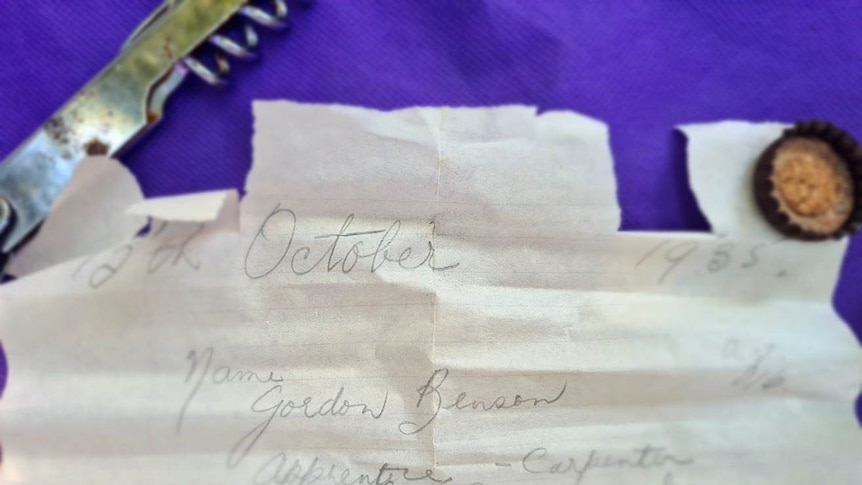 12th October 1955.
Name age
Gordon Benson 16
Apprentice - Carpenter